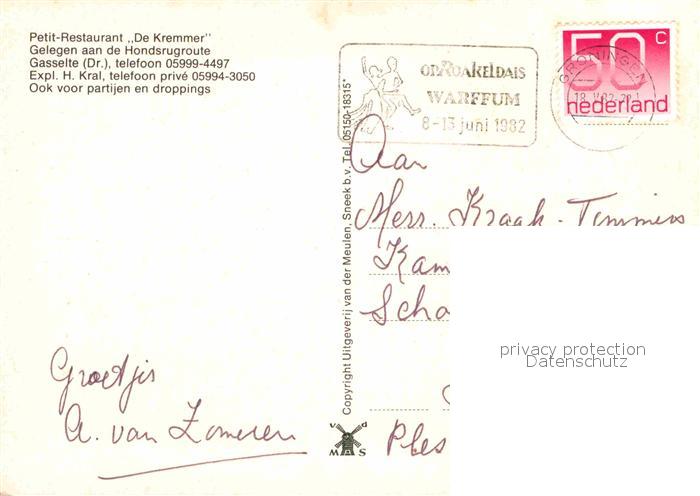 Petit-Restaurant ,,De Kremmer''
Gelegen aan de Hondsrugroute
Gasselte (Dr.), telefoon 05999-4497
Expl. H. Kral, telefoon privé 05994-3050
Ook voor partijen en droppings
Groetjis
A. van Zomeren
Copyright Uitgeverij van der Meulen, Sneek b.v. Tel. 05150-18315*
v d
M S
OP ROAKELDAIS
WARFFUM
8-13 juni 1982
GRONINGEN
50 c
nederland
Aan
Kraak - Timmers
Kam
Scha
Ples
privacy protection
Datenschutz